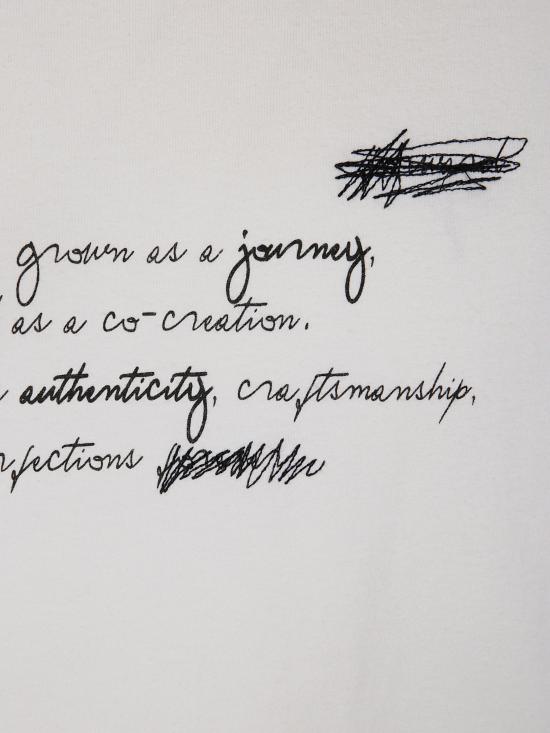 grown as a journey,
as a co-creation.
authenticity, craftsmanship,
rfections